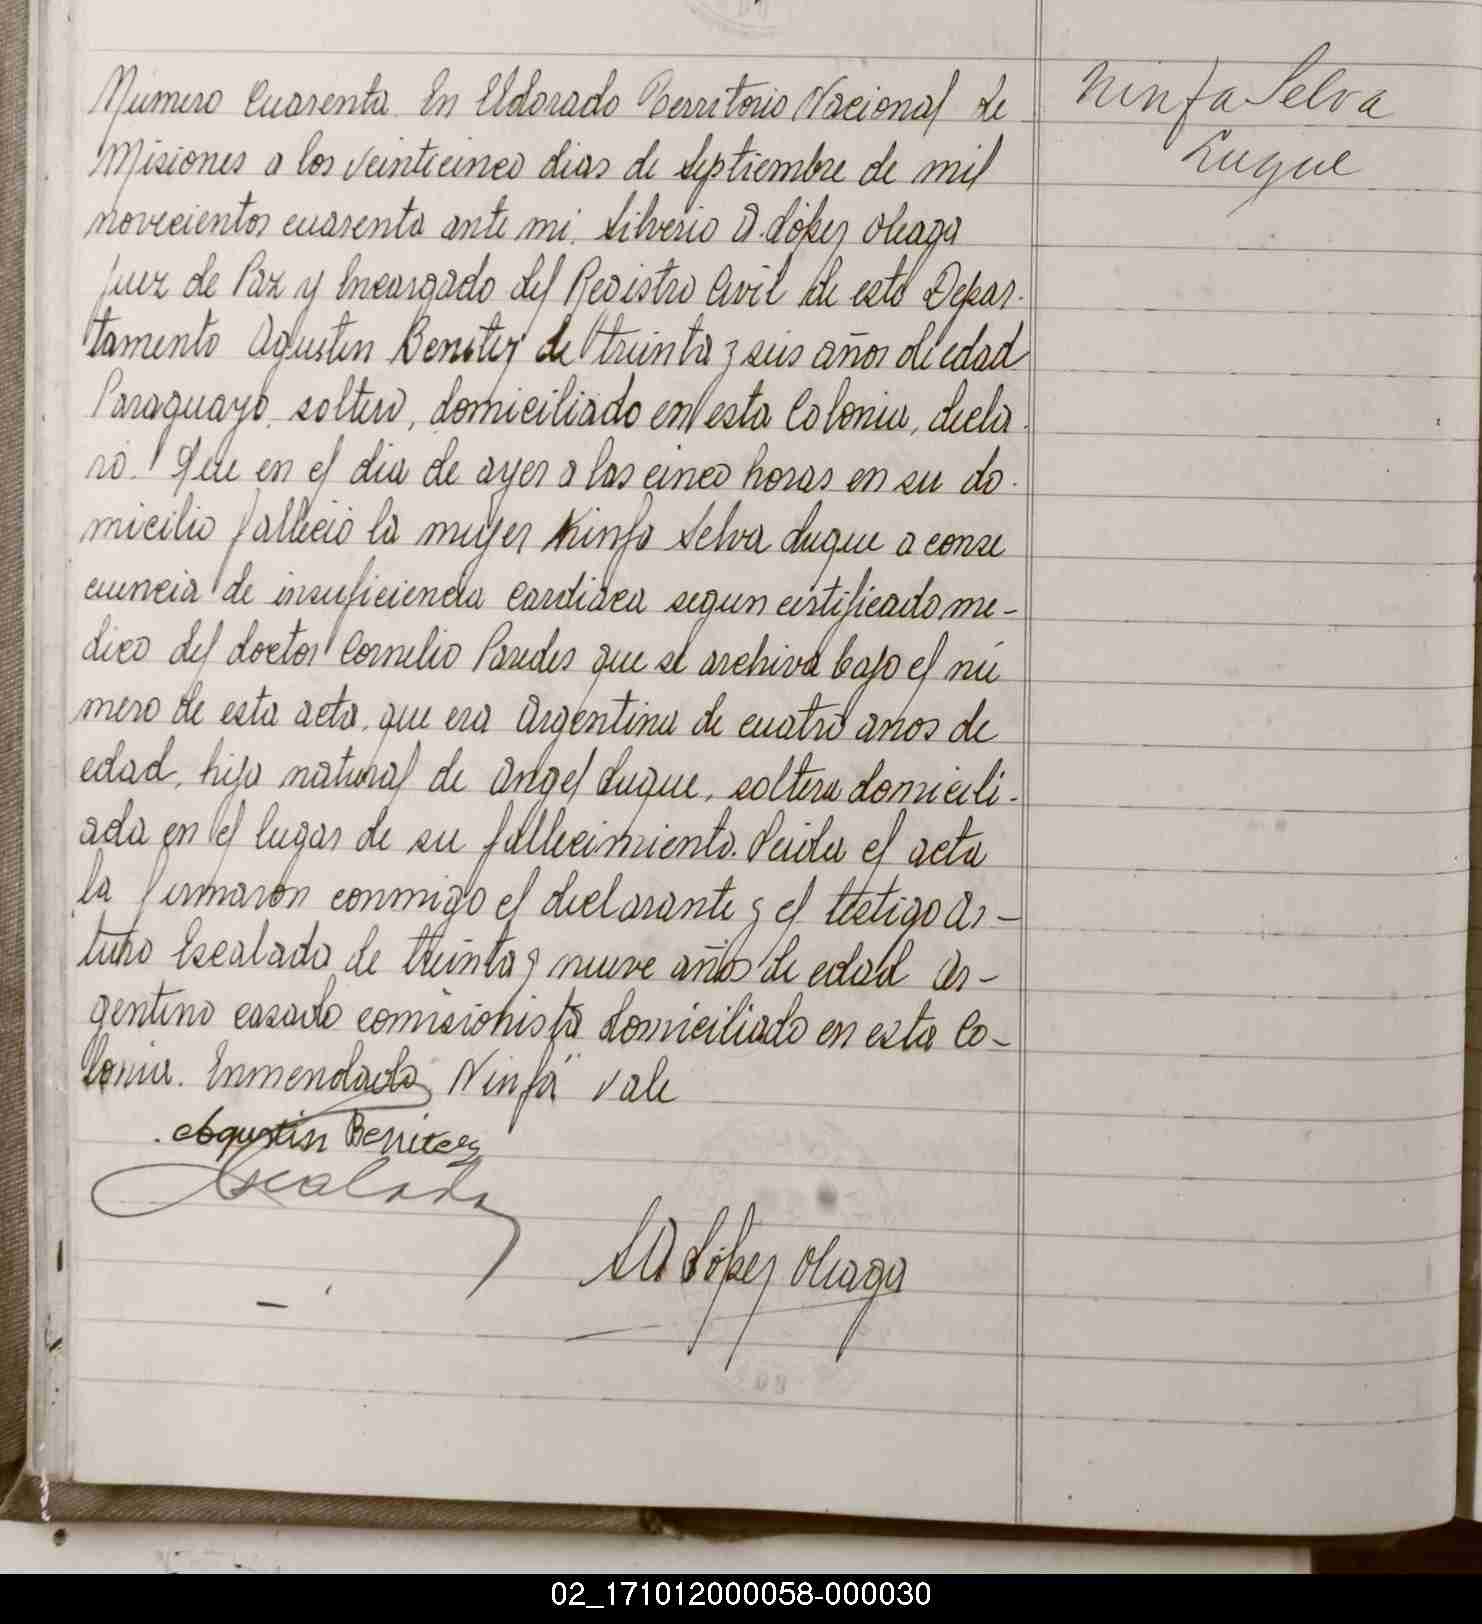 Número Cuarenta. En Eldorado Territorio Nacional de
Misiones a los veinticinco dias de Septiembre de mil
novecientos cuarenta ante mi. Silverio A. López Oleaga
Juez de Paz y Encargado del Registro Civil de este Depar-
tamento Agustin Benitez de treinta y seis años de edad
Paraguayo, soltero, domiciliado en esta Colonia, decla-
ró. Que en el dia de ayer a las cinco horas en su do-
micilio falleció la mujer Ninfa Selva Luque a conse
cuencia de insuficiencia cardiaca segun certificado me-
dico del doctor Cornelio Paredes que se archiva bajo el nú
mero de esta acta. que era Argentina de cuatro años de
edad, hija natural de Angel Luque, soltera domicili-
ada en el lugar de su fallecimiento. Leida el acta
la firmaron conmigo el declarante y el testigo Ar-
turo Escalada de treinta y nueve años de edad Ar-
gentino casado comisionista domiciliado en esta Co-
lonia. Enmendado "Ninfa" Vale
Agustin Benitez
Escalada
SA López Oleaga
Ninfa Selva
Luque
02_171012000058-000030